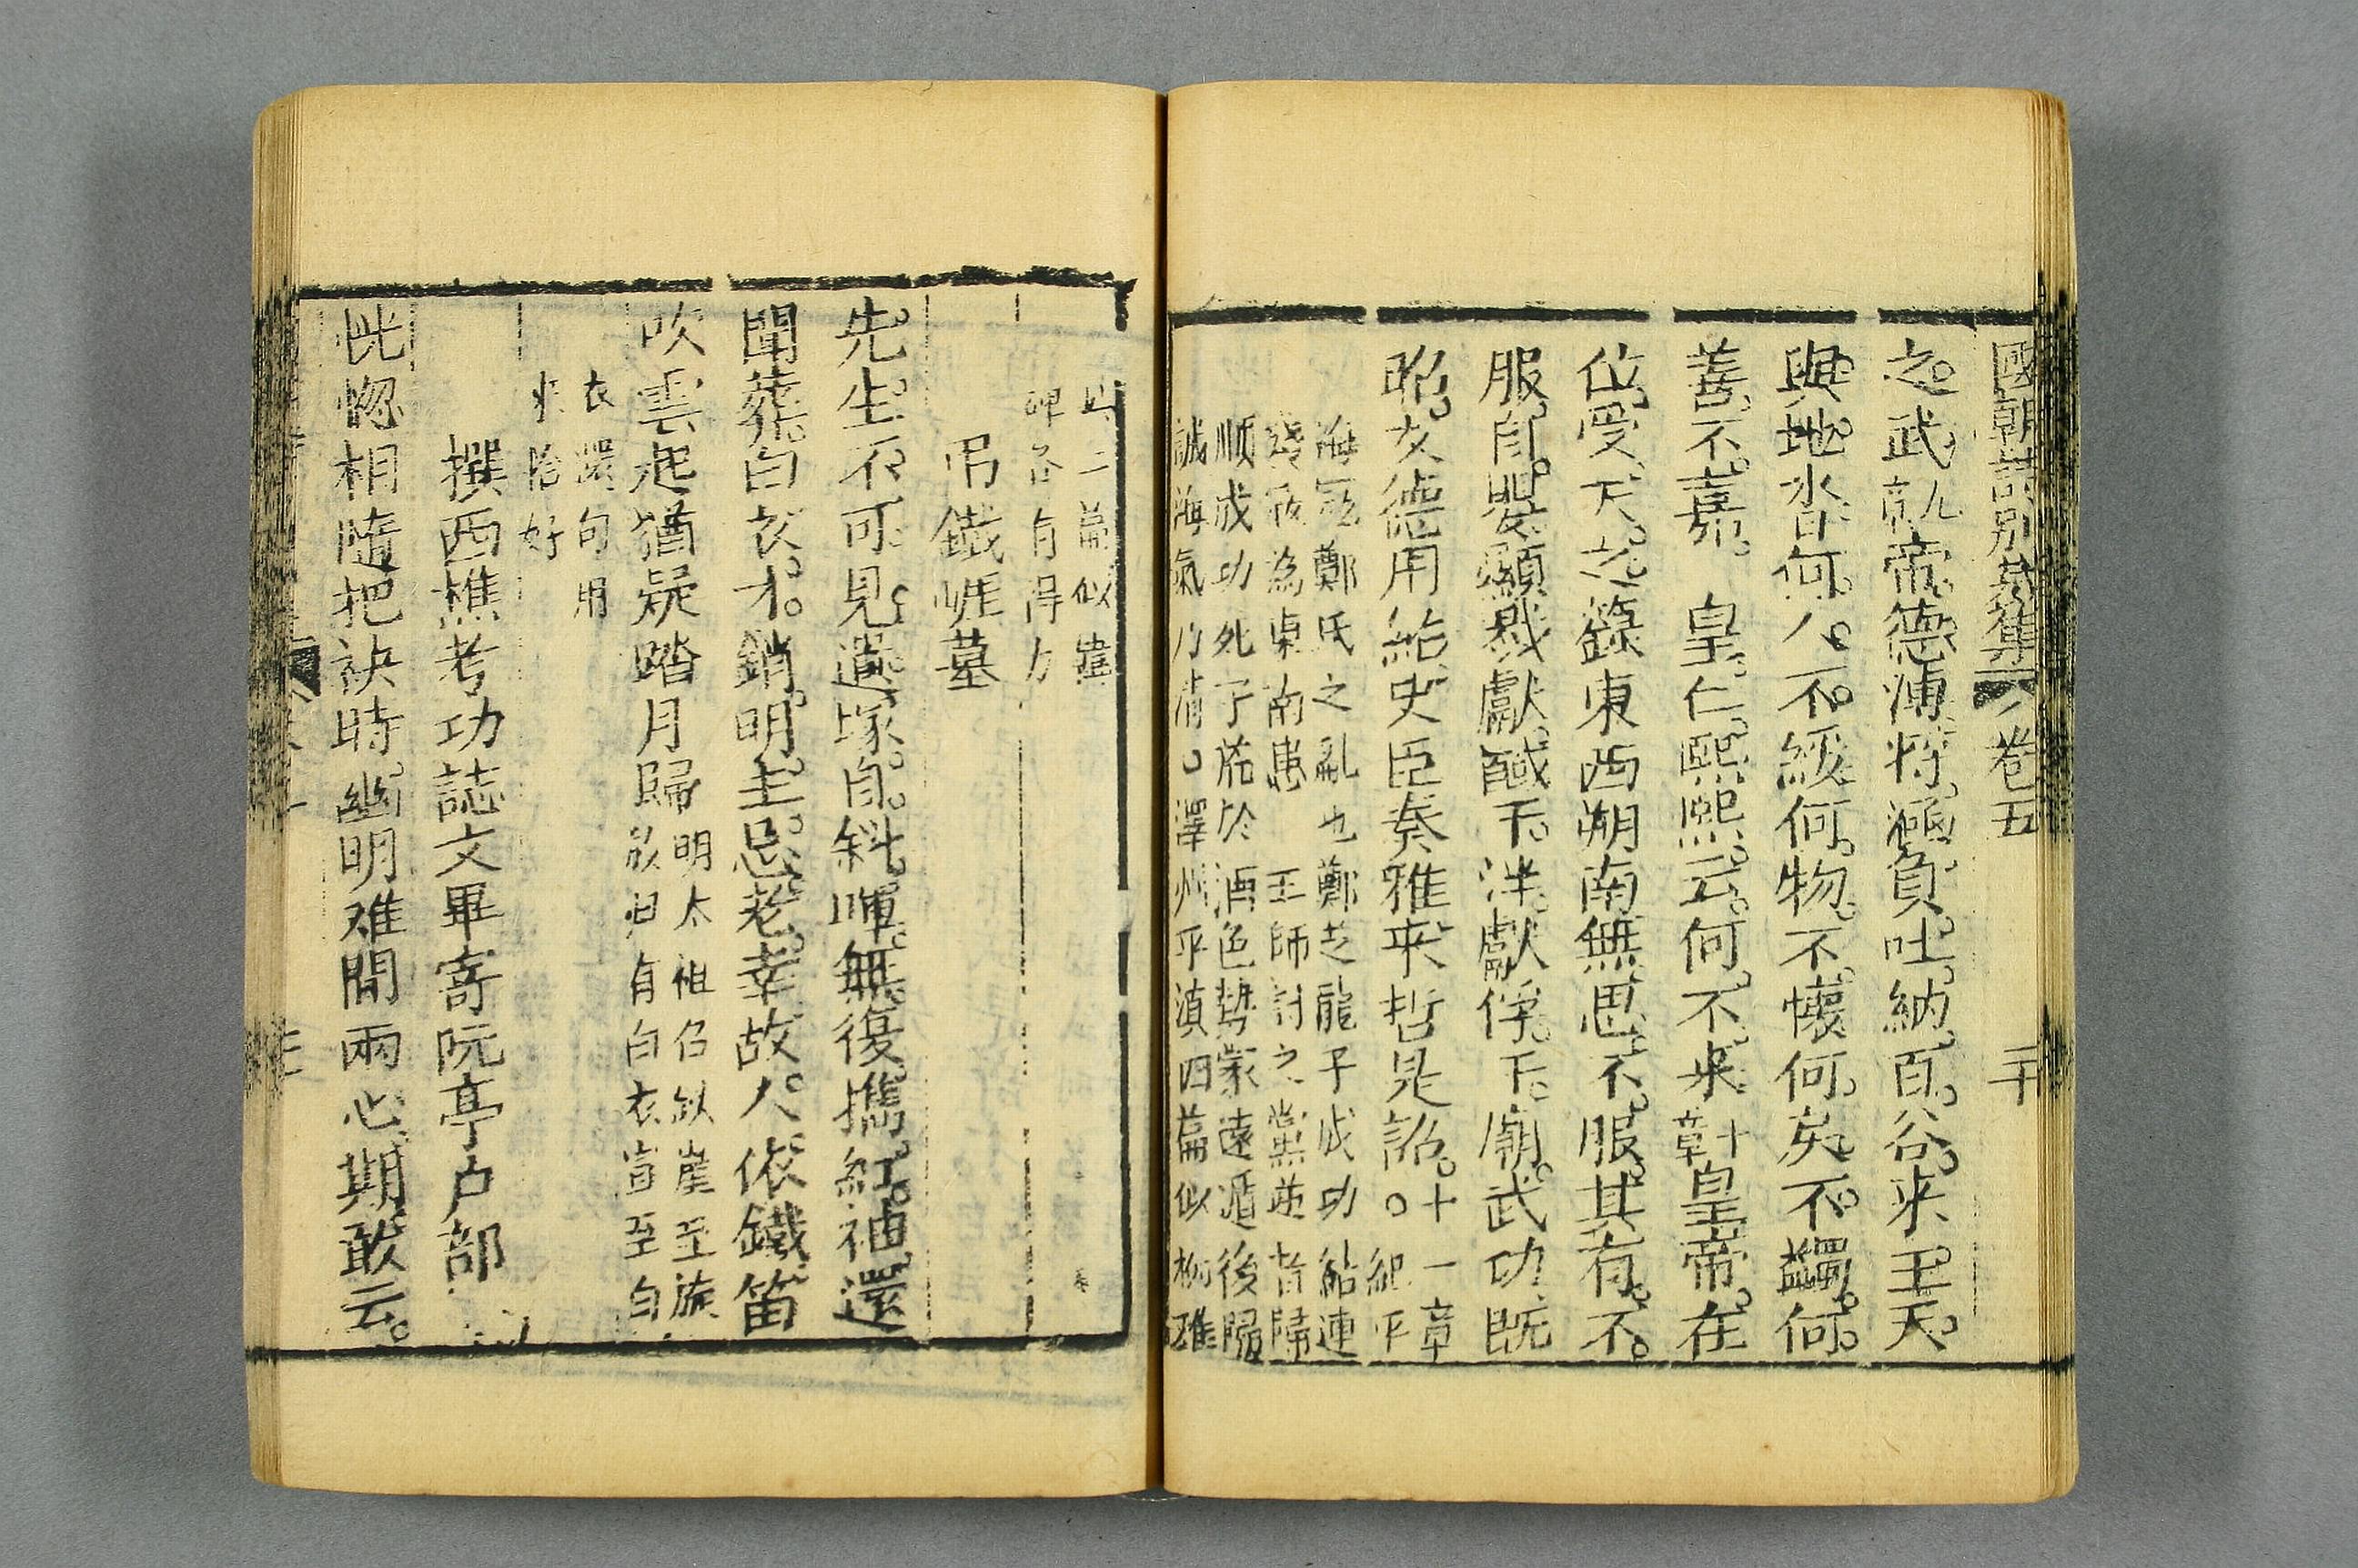 國朝詩別裁集 卷五 二十
之武九章帝德溥將涵負吐納百谷來王天
與地沓何人不綏何物不懷何夷不蠲何
善不嘉 皇仁熙熙云何不來十章皇帝在
位受天之籙東西朔南無思不服其有不
服自嬰顯戮獻馘于泮獻俘于廟武功既
昭文德用給史臣奏雅來哲是詔十一章
○紀平
海寇鄭氏之亂也鄭芝龍子成功鮎連
踐敓為東南患 王師討之黨並歸
順成功死了 於酒色勢 遠遁後歸
誠海氣乃清 澤州平滇四篇似柳雅
此二篇似韓
碑各有得力
弔鐵崖墓
先生不可見遺塚自斜暉無復攜紅袖還
聞葬白衣才銷明主忌老幸故人依鐵笛
吹雲起猶疑踏月歸明太祖召鐵崖至旋
放歸有白衣宣至白
衣還句用
來恰好
撰西樵考功誌文畢寄阮亭户部
此惚相隨把袂時幽明难間兩心期敢云